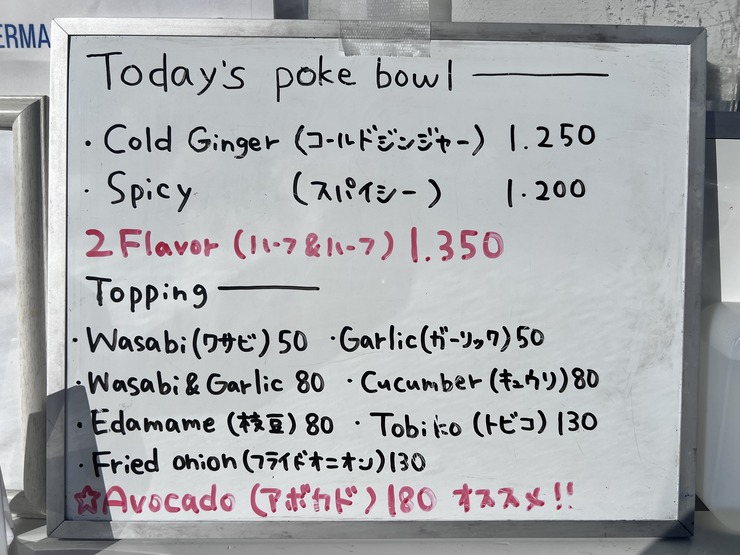 ERMA
Today's poke bowl
・Cold Ginger (コールドジンジャー) 1.250
・Spicy (スパイシー) 1.200
2 Flavor (ハーフ&ハーフ) 1.350
Topping
・Wasabi (ワサビ) 50 ・Garlic (ガーリック) 50
・Wasabi & Garlic 80 ・Cucumber (キュウリ) 80
・Edamame (枝豆) 80 ・Tobiko (トビコ) 130
・Fried onion (フライドオニオン) 130
☆Avocado (アボカド) 180 オススメ!!